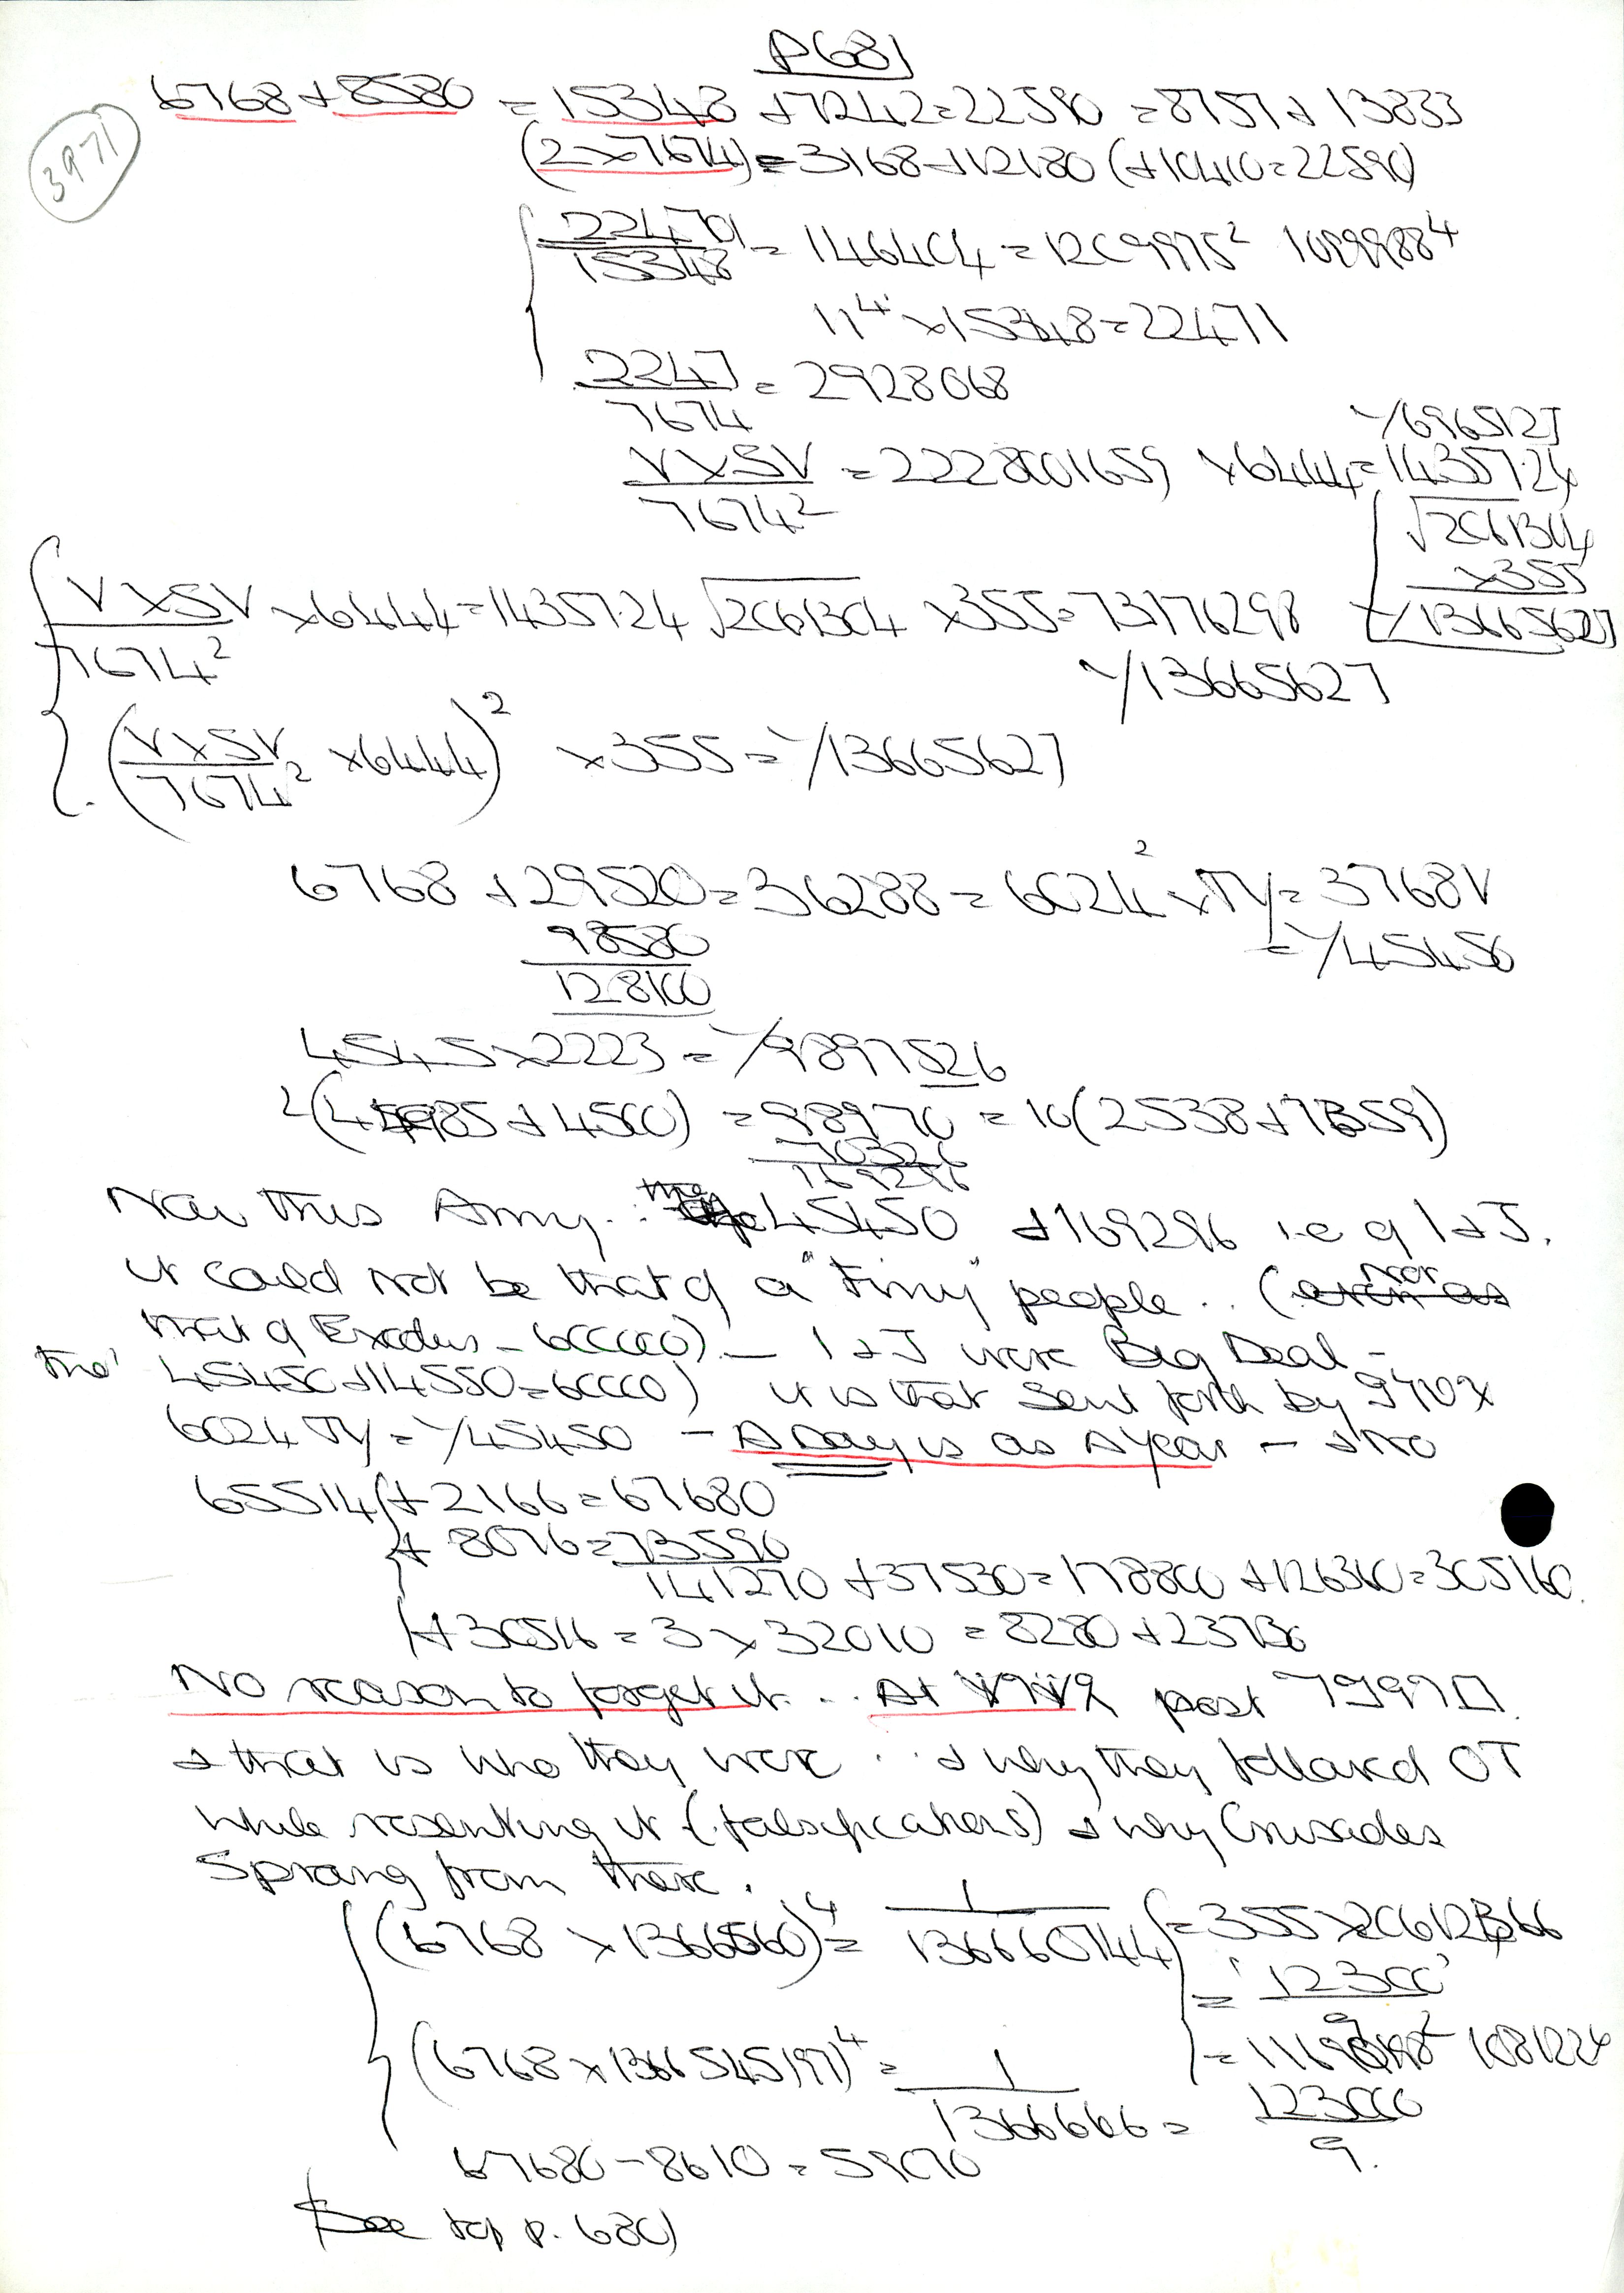 P681
3971
6768 + 8580 = 15348 + 7242 = 22590 = 8757 + 13833
(2 × 7674) = 3168 + 12180 (+ 10410 = 22590)
224701 / 15348 = 146404 = 1209975² 1099988⁴
11⁴ × 15348 = 22471
2247 / 7674 = 2928068
1/6965127
V × SV / 7674² = 2228001659 × 6444 = 14357.24
√2061304
× 355
1/13665627
V × SV / 7674² × 6444 = 14357.24 √2061304 × 355 = 73176298
1/13665627
(V × SV / 7674² × 6444)² × 355 = 1/13665627
6768 + 29520 = 36288 = 6024² × TY = 3768V
98580 = 1/45450
128100
4545 × 2223 = 1/9897526
2(44985 + 4500) = 98970 = 10(2538 + 7359)
70326
169296
Now this Army: the 45450 + 169296 i.e. of I & J.
it could not be that of a "Tiny" people .. (nor
that of Exodus - 600000) — I & J were Big Deal -
the 45450 + 14550 = 60000) it is that sent forth by
6024 TY = 1/45450 - A Day is as A year - & No
65514 + 2166 = 67680
+ 8076 = 73590
141270 + 37530 = 178800 + 126360 = 305160.
+ 30516 = 3 × 32010 = 8280 + 23730
No reason to forget it... At past
& that is who they were .. & why they followed OT
while resenting it (falsifications) & why Crusades
Sprang from there.
(6768 × 1366560)⁴ = 1 / 136660744 = 355 ×
= '12300' / 9
(6768 × 1366545197)⁴ = 1 / 1366666 = 123000 / 9.
1081224
67680 - 8610 = 59070
(See top p. 680)